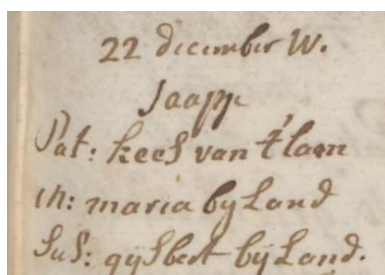 22 december W.
Jaapje
Pat: kees van 't lam
m: maria byLand
Sus: gijsbert bijLand.